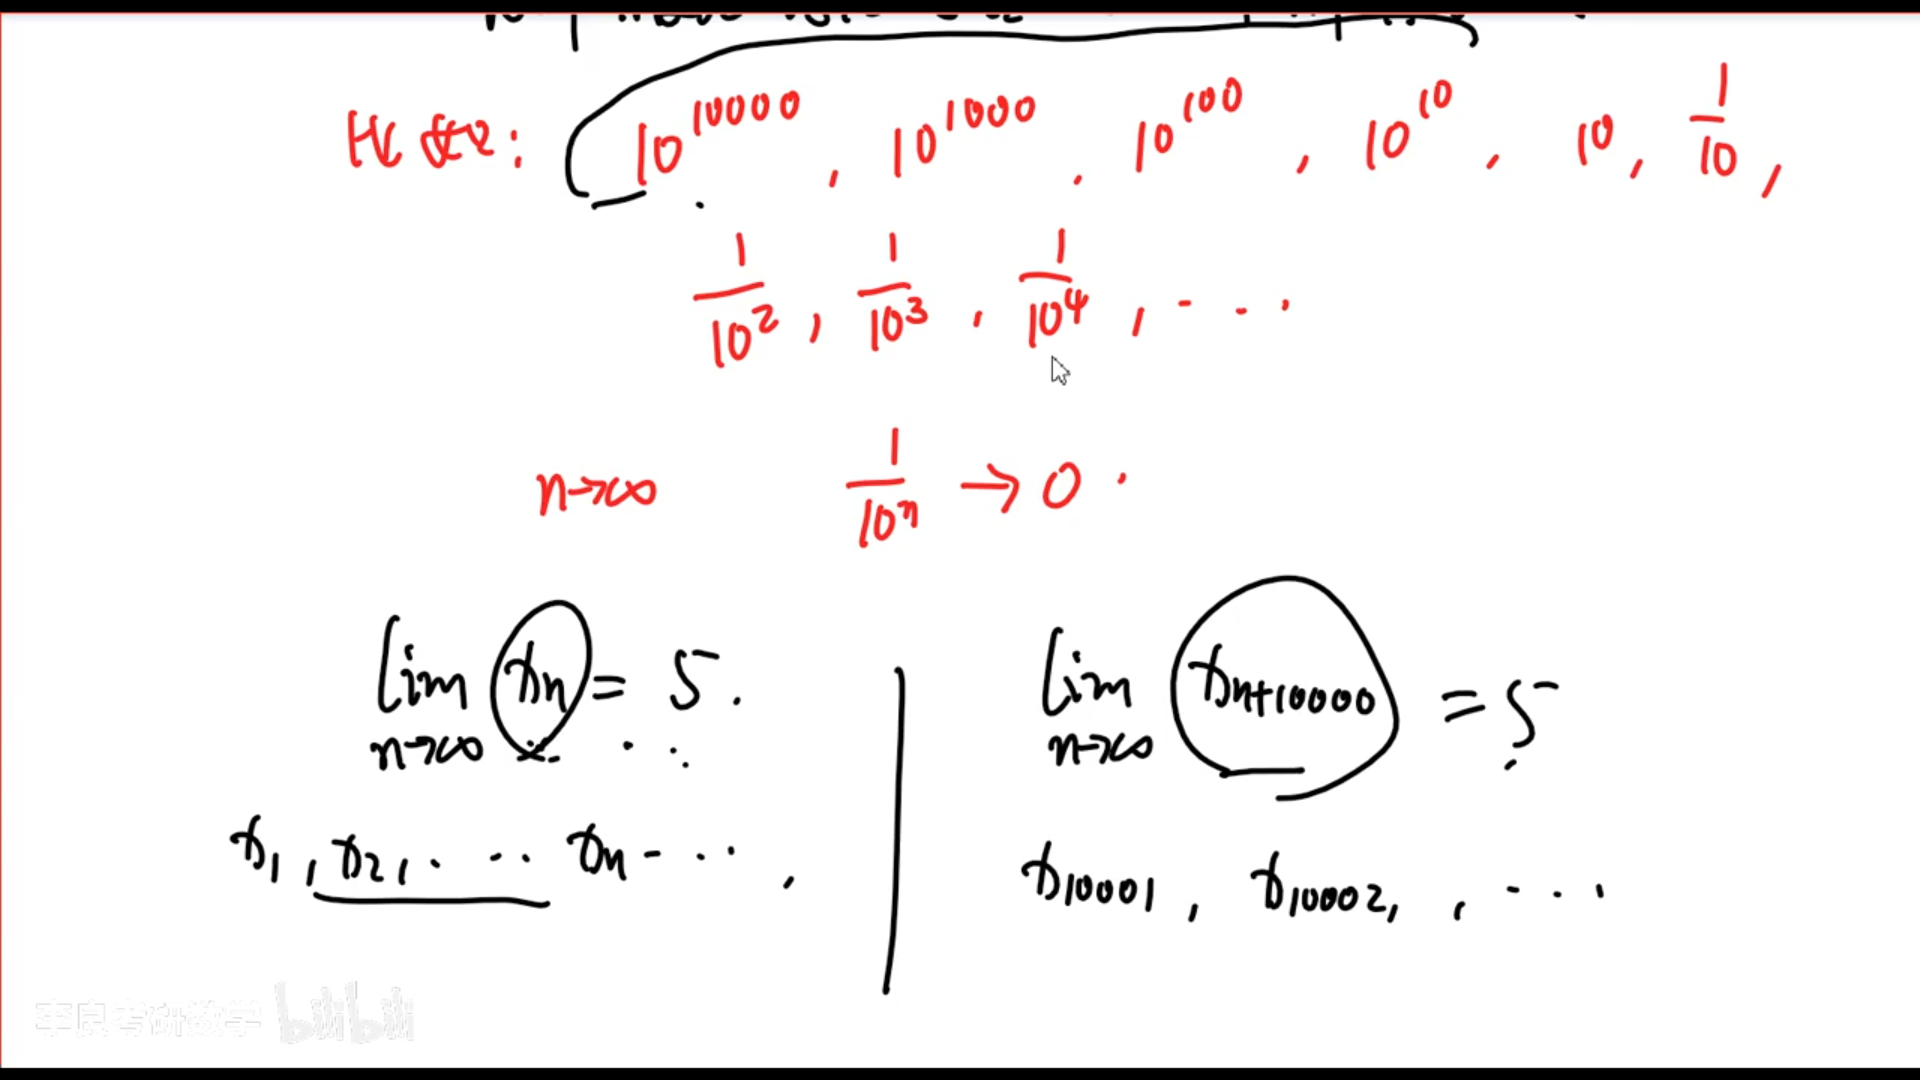 比如: 10^10000, 10^1000, 10^100, 10^10, 10, 1/10,
1/10^2, 1/10^3, 1/10^4, ...
n→∞ 1/10^n → 0.
lim n→∞ xn = 5.
lim n→∞ xn+10000 = 5
x1, x2, ... xn ...,
x10001, x10002, , ...
李良考研数学 bilibili